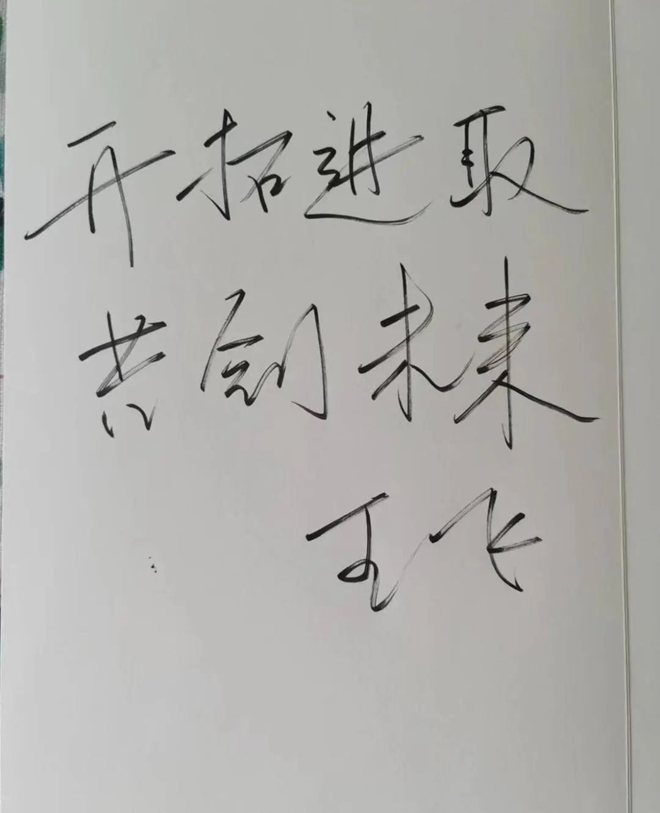 开拓进取
共创未来
王飞